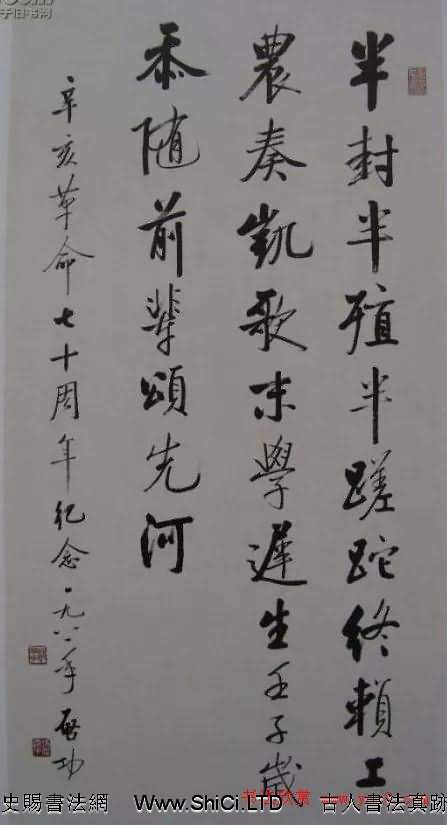 半封半殖半蹉跎终賴工
農奏凱歌末學遲生壬子歲
忝随前輩頌先河
辛亥革命七十周年纪念一九八一年 启功
史賜書法網 www.ShiCi.LTD 古人書法真跡